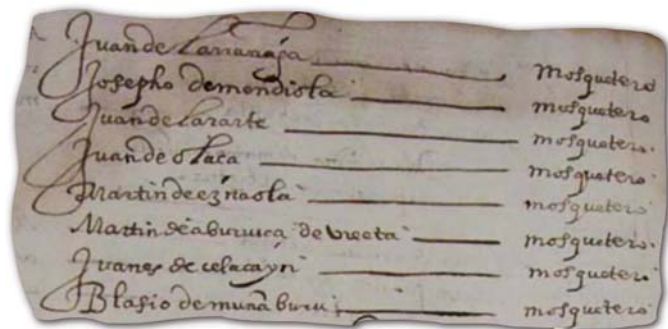 Juan de Larranaga mosquetero
Josepho de mendiola mosquetero
Juan de Lararte mosquetero
Juan de olaça mosquetero
Martin de eznaola mosquetero
Martin de aburuça de vreeta mosquetero
Juanes de celacayn mosquetero
Blasio de muña buru mosquetero